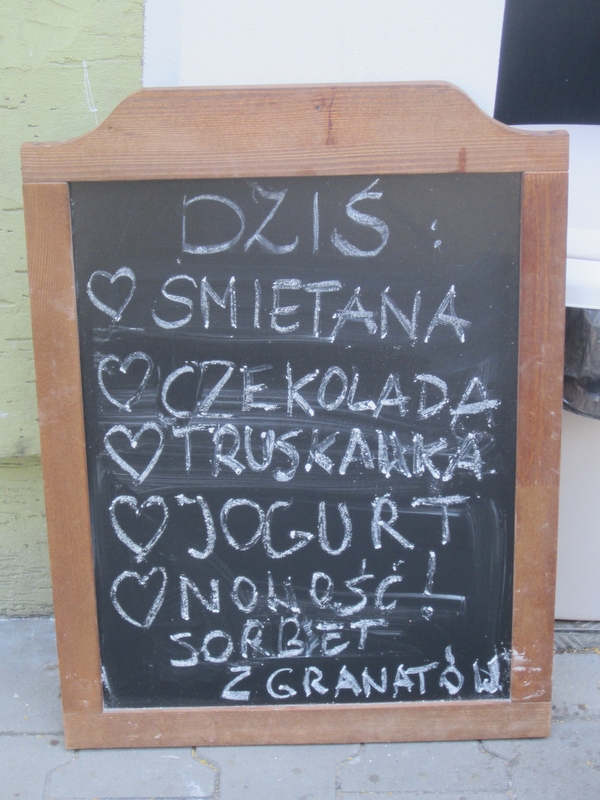 DZIŚ:
ŚMIETANA
CZEKOLADA
TRUSKAWKA
JOGURT
NOWOŚĆ!
SORBET
Z GRANATÓW